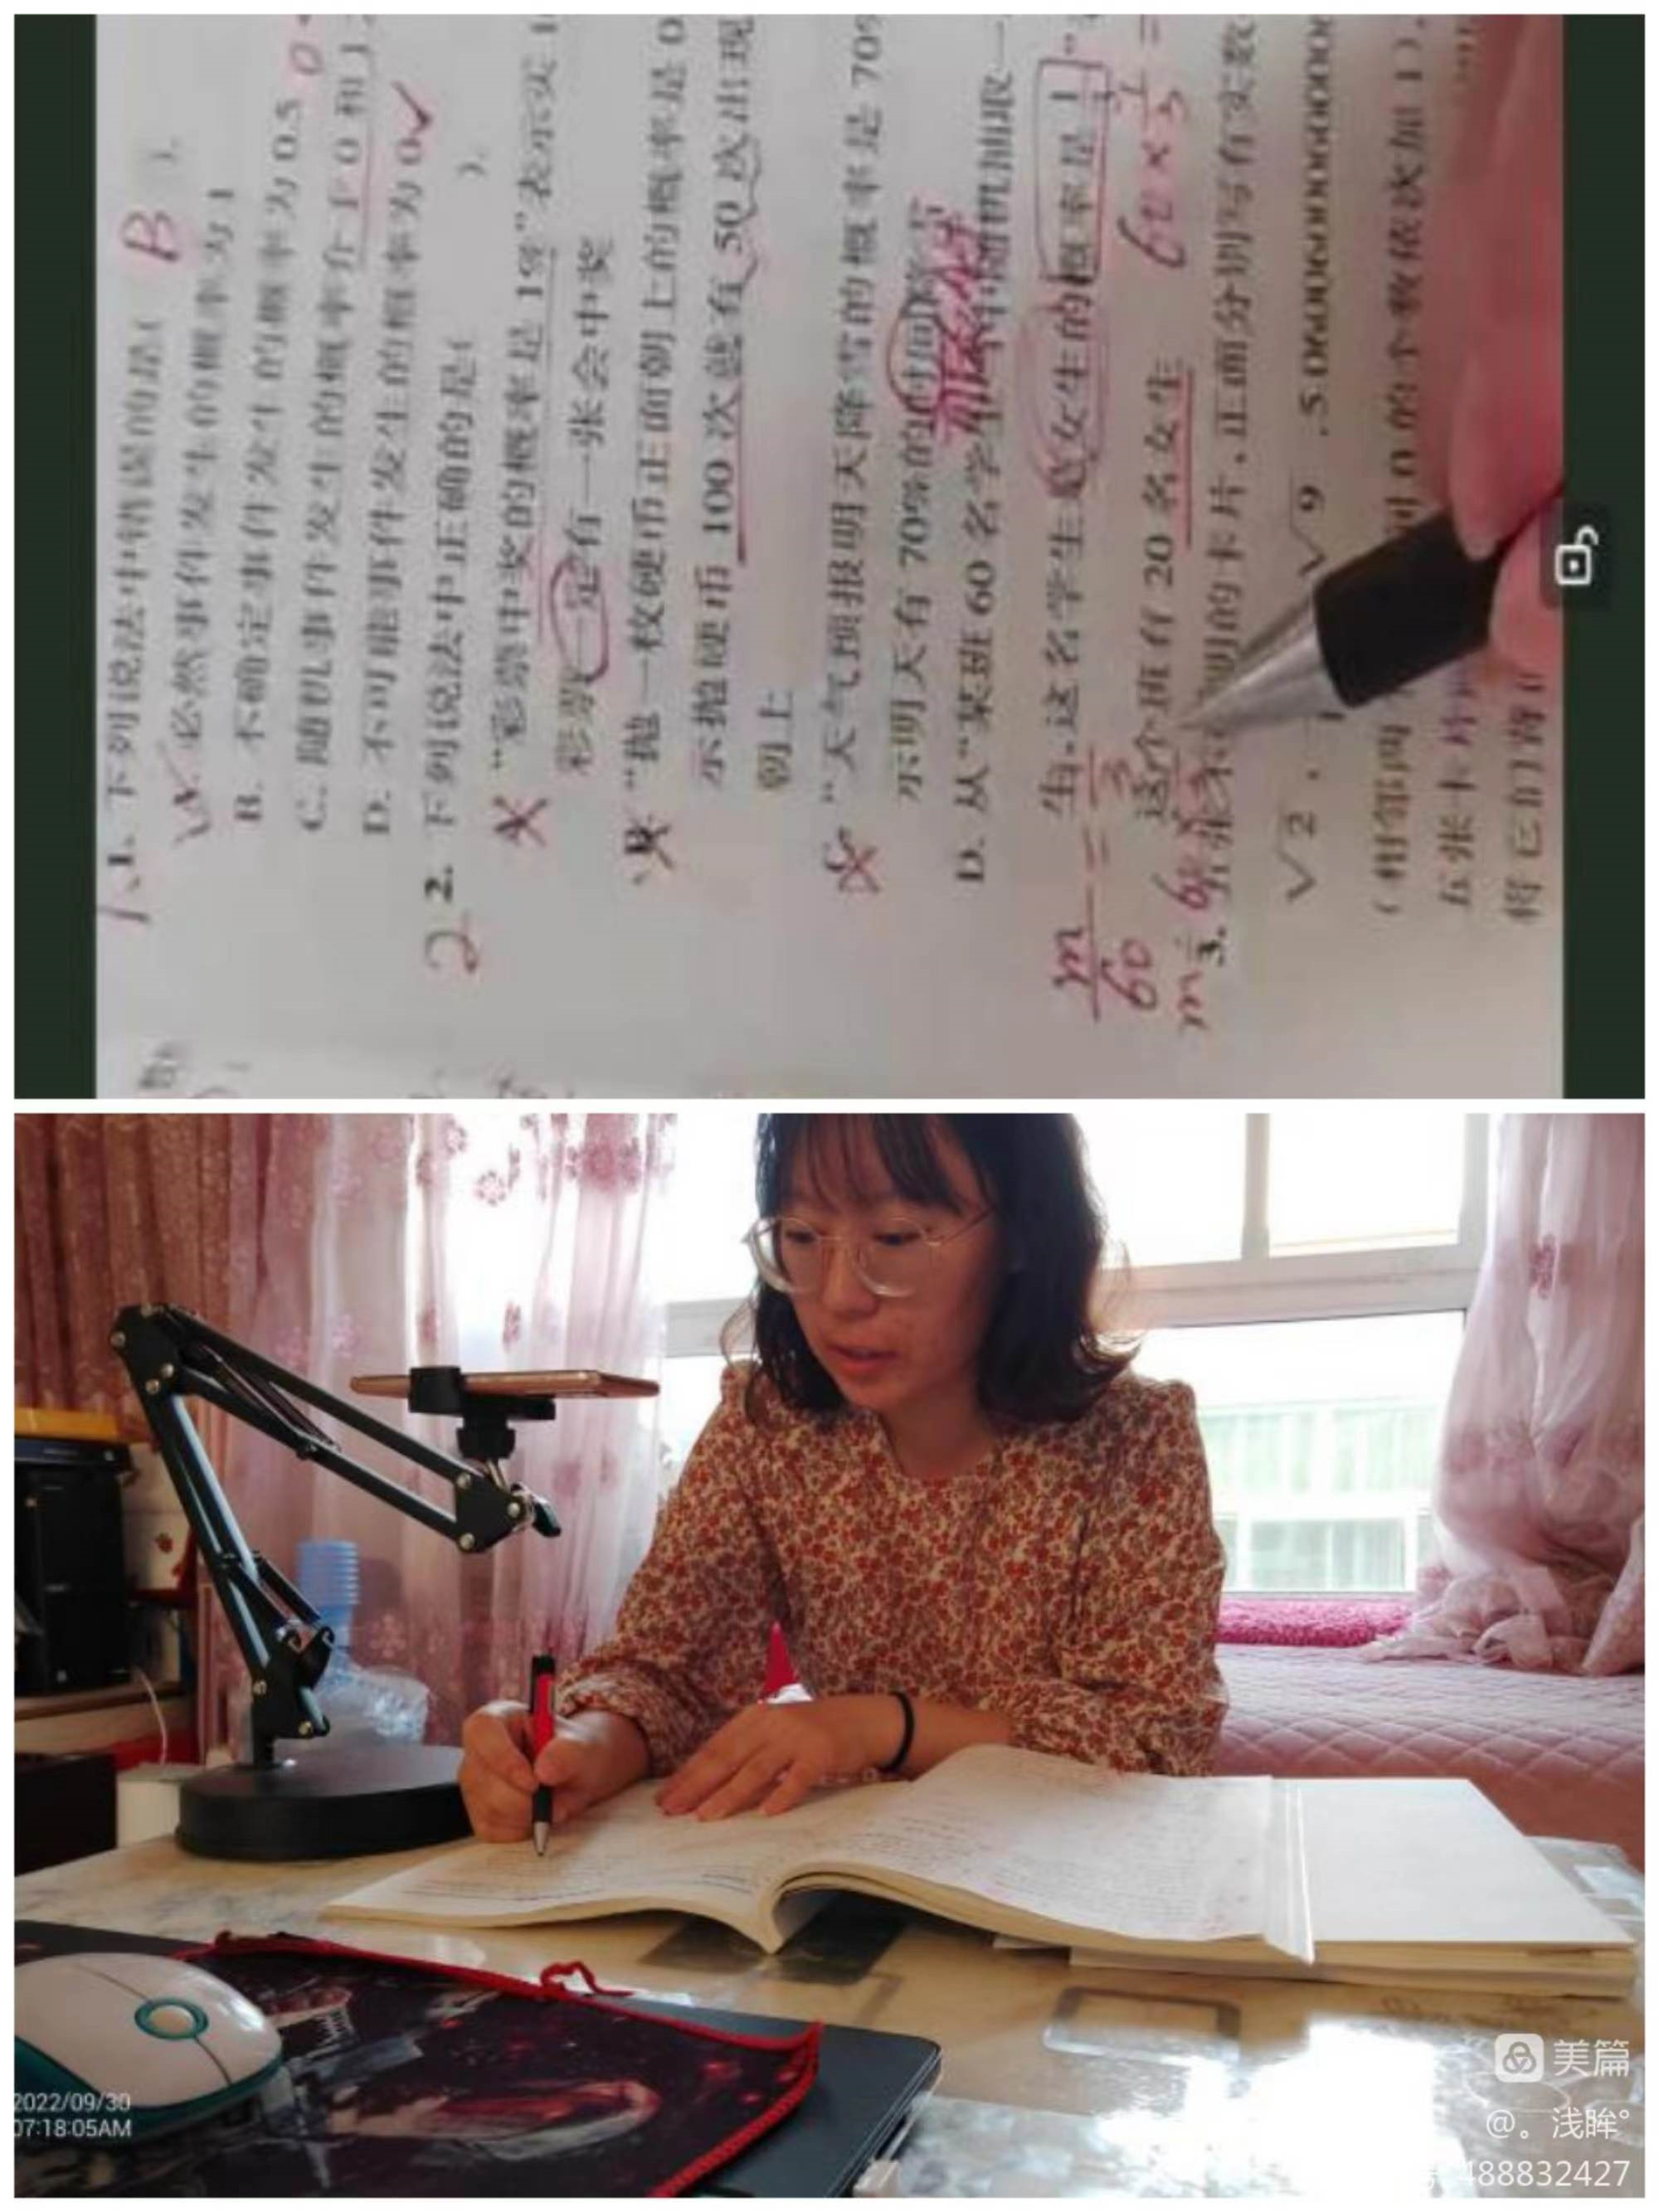 1. 下列说法中错误的是( B ).
A. 必然事件发生的概率为 1
B. 不确定事件发生的概率为 0.5
C. 随机事件发生的概率介于 0 和 1
D. 不可能事件发生的概率为 0
2. 下列说法中正确的是( ).
A. “彩票中奖的概率是 1%”表示买 1
彩票一定有一张会中奖
B. “抛一枚硬币正面朝上的概率是 0
示抛硬币 100 次就有 50 次出现
朝上
C. “天气预报明天降雪的概率是 70%
示明天有 70%的时间降雪
D. 从“某班 60 名学生中随机抽取一
生,这名学生是女生的概率是 1
这个班有 20 名女生
m/60 = 1/3
60 × 1/3 =
3. 五张 的卡片,正面分别写有实数
√2 , √9 , 5.060060006000
(相邻两 0 的个数依次加 1),
五张卡片
将它们背
2022/09/30
07:18:05AM
美篇
@。浅眸°
488832427